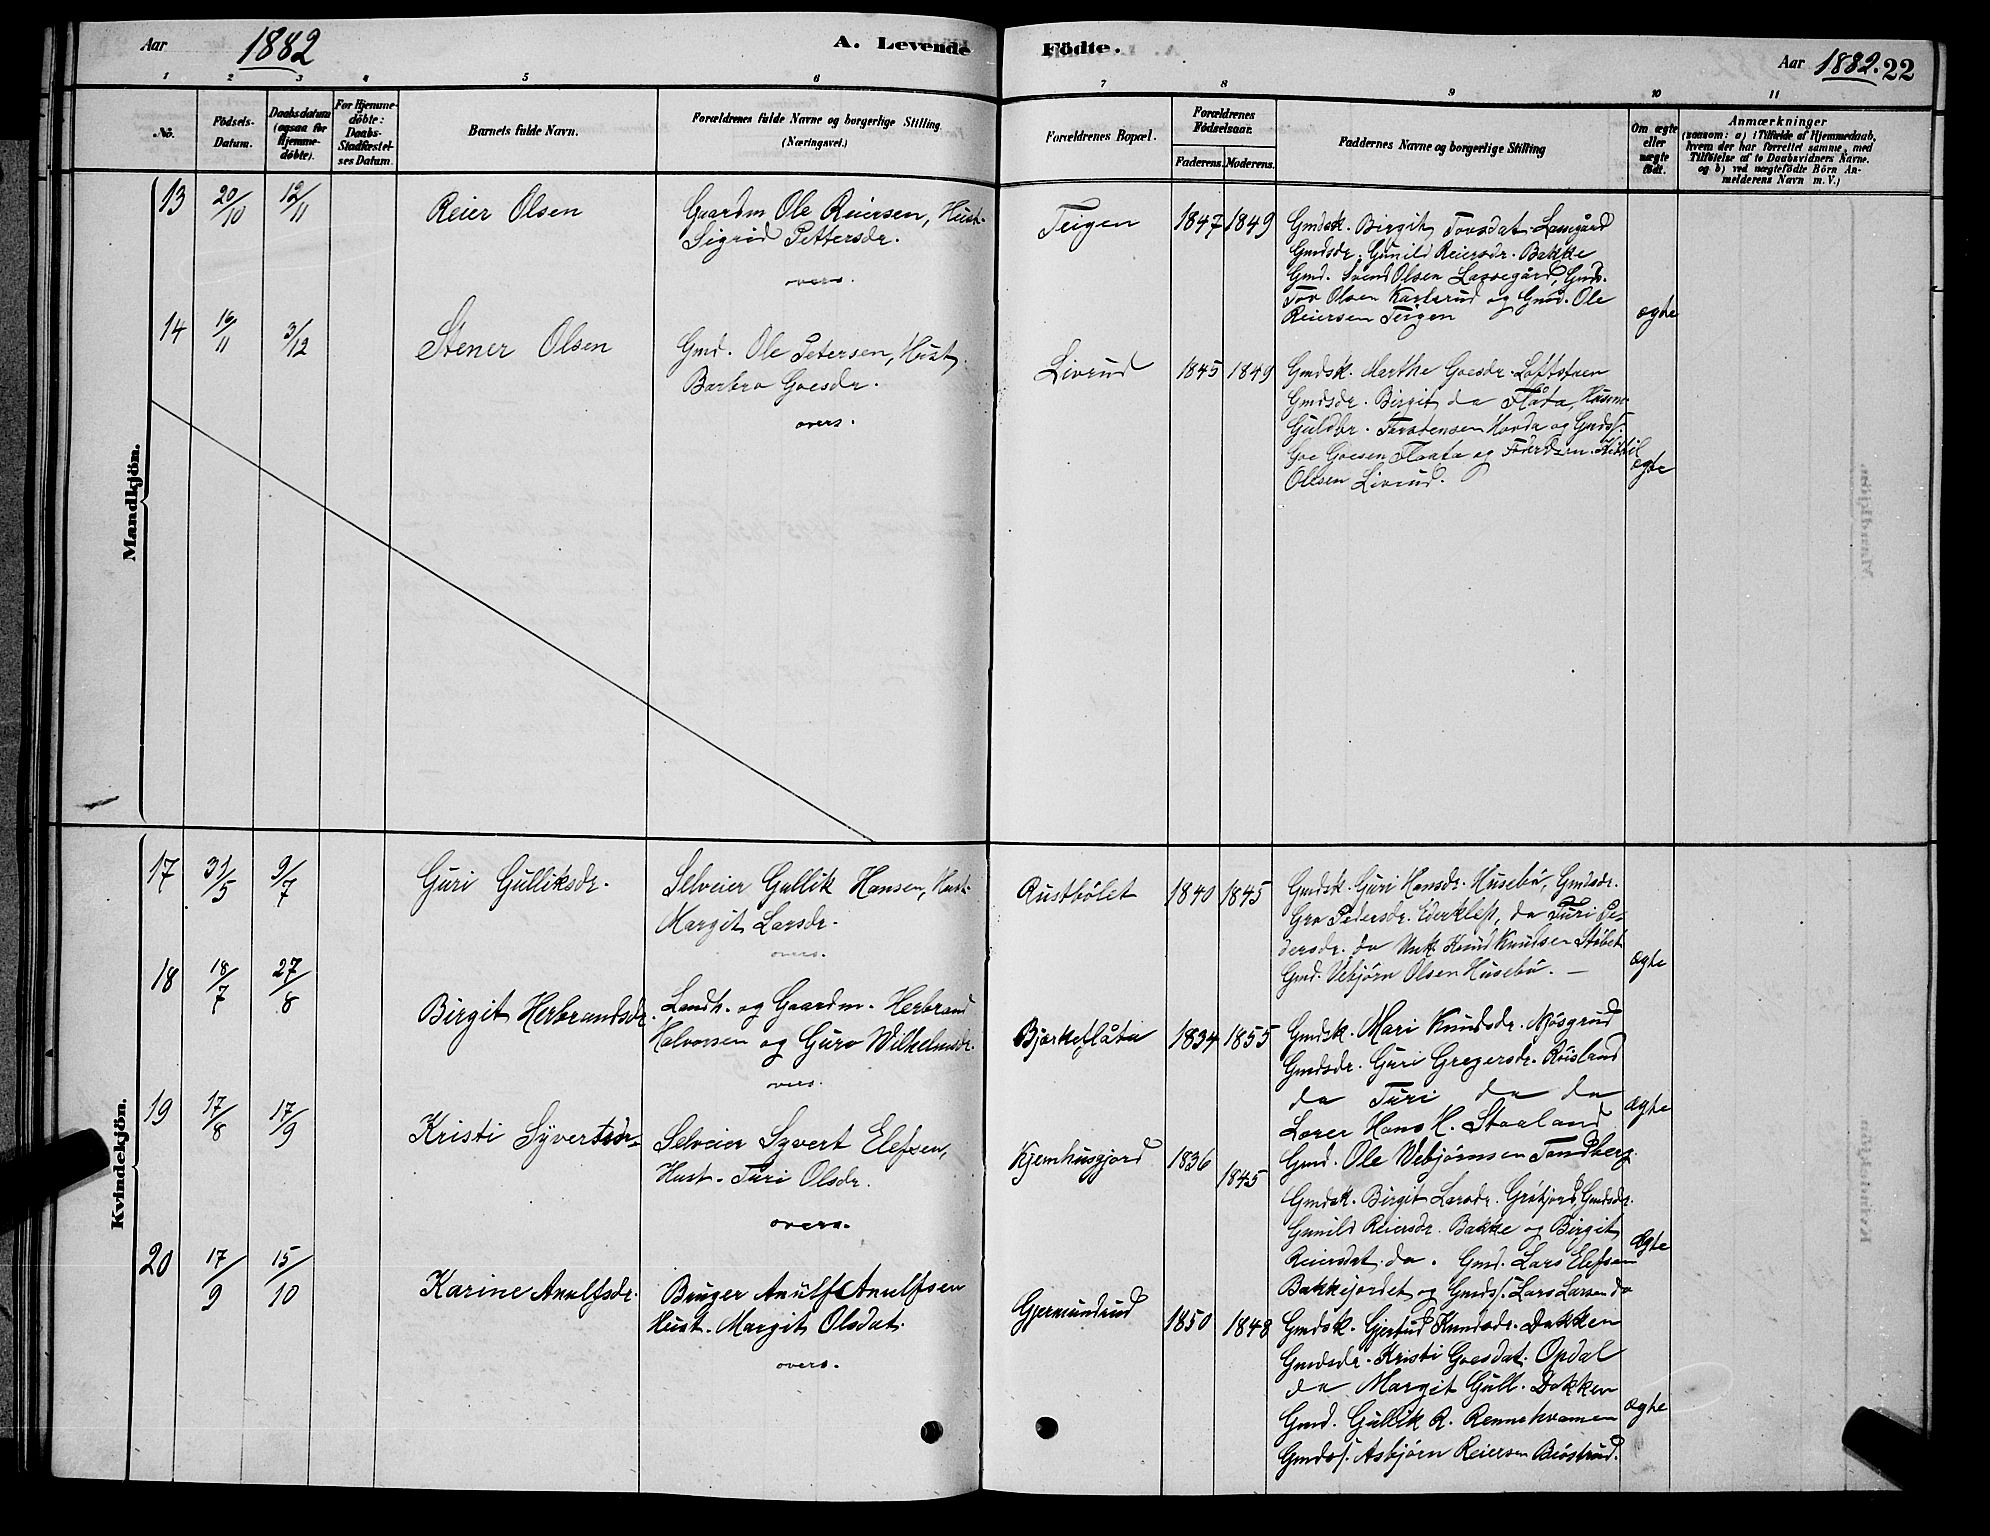 Aar 1882
A. Levende Födte.
Aar 1882. 22
1 2 3 4 5 6 7 8 9 10 11
No.
Födsels-
Datum.
Daabsdatum
(ogsaa for
Hjemme-
döbte).
For Hjemme-
döbte:
Daabs-
Stadfæstel-
ses Datum.
Barnets fulde Navn.
Forældrenes fulde Navne og borgerlige Stilling
(Næringsvei.)
Forældrenes Bopæl.
Forældrenes
Födselsaar.
Faderens. Moderens.
Faddernes Navne og borgerlige Stilling
Om ægte
eller
uægte
födt.
Anmærkninger
(saasom: a) i Tilfælde af Hjemmedaab,
hvem der har forrettet samme, med
Tilföielse af to Daabsvidners Navne.
og b) ved uægtefödte Börn An-
melderens Navn m. V.)
Mandkjön.
13 20/10 12/11 Reier Olsen
Gaardm Ole Reiersen, Hust.
Sigrid Pettersdr.
overs.
Teigen 1847 1849
Gmdsk. Birgit Tovsdat. Lassegård
Gmdsdr. Gunild Reiersdr. Bakke
Gmd. Svend Olsen Lassegård, Gmds.
Tov Olsen Karlsrud og Gmd. Ole
Reiersen Teigen
ægte
14 16/11 3/12 Stener Olsen
Gmd. Ole Petersen, Hust.
Barbro Goesdr.
overs.
Livrud 1845 1849
Gmdsk. Marthe Goesdr. Loftstuen
Gmdsdr. Birgit do Flåta, Husm.
Guldbr. Torstensen Hovda og Gmdss.
Goe Goesen Flaata og
Olsen Livrud.
ægte
Kvindekjön.
17 31/5 9/7 Guri Gulliksdr.
Selveier Gullik Hansen, Hust.
Margit Larsdr.
overs.
Rustbölet 1840 1845
Gmdsk. Guri Hansdr. Husebö, Gmdsdr.
Gro Pedersdr. Ederklep, do Turi Pe-
dersdr. do Unk. Knud Knudsen Stöbet
Gmd. Vebjörn Olsen Husebö. —
ægte
18 18/7 27/8 Birgit Herbrandsdr.
Landh. og Gaardm. Herbrand
Halvorsen og Guro Wilhelmsdr.
overs.
Bjørkeflåta 1834 1855
Gmdsk. Mari Knudsdr. Mösgrud
Gmdsdr. Guri Gregersdr. Röisland
do Turi do do
Lærer Hans H. Staaland
Gmd. Ole Vebjörnsen Tandberg
ægte
19 17/8 17/9 Kristi Syvertsdr.
Selveier Syvert Elefsen,
Hust. Turi Olsdr.
overs.
Kjemhusgjord 1836 1845
Gmdsk. Birgit Larsdr. Gröfjord, Gmdsdr.
Gunild Reiersdr. Bakke og Birgit
Reiersdat. do. Gmd. Lars Elefsen
Bakkejordet og Gmdss. Lars Larsen do
ægte
20 17/9 15/10 Karine Anulfsdr.
Bruger Anulf Anulfsen
Hust. Margit Olsdat.
overs.
Gjermundrud 1850 1848
Gmdsk. Gjertrud Knudsdr. Dokken
Gmdsdr. Kristi Goesdat. Opdal
do Margit Gull. Dokken
Gmd. Gullik R. Rennehvamen
Gmdss. Asbjørn Reiersen
ægte